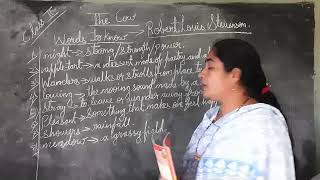 Class II
The Cow
Words To Know → Robert Louis Stevenson.
1) might → strong / strength / power.
2) appletart → a dessert made of pastry and a
3) Wander → walks or strolls from place to
4) lowing → the moving sound made by
5) Stray → to leave or wander away from
6) Pleasant → something that makes one feel happy
7) showers → rainfall.
8) meadow → a grassy field.